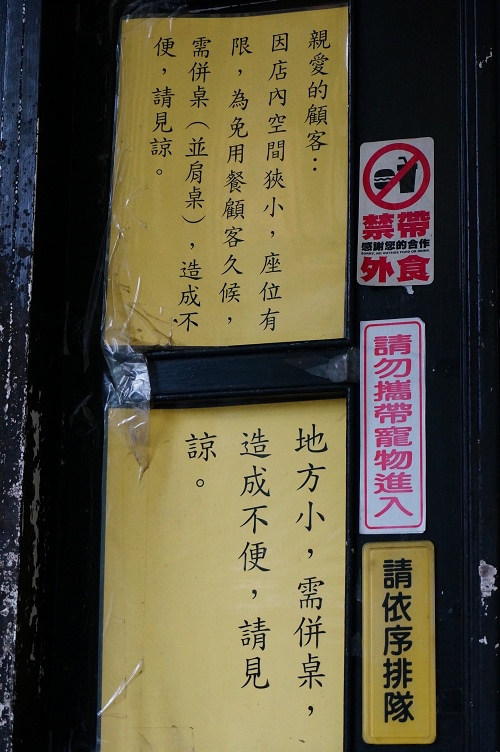 親愛的顧客：
因店內空間狹小，座位有
限，為免用餐顧客久候，
需併桌（並肩桌），造成不
便，請見諒。
地方小，需併桌，
造成不便，請見
諒。
禁帶
感謝您的合作
SORRY, NO OUTSIDE FOOD OR DRINK
外食
請勿攜帶寵物進入
請依序排隊